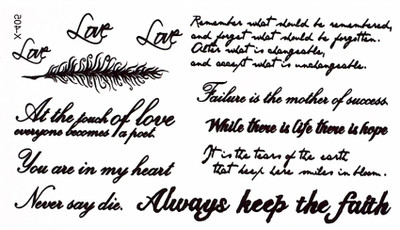 X-405
Love
Love
Love
Remember what should be remembered,
and forget what should be forgotten.
Alter what is changeable,
and accept what is unchangeable.
At the touch of love
everyone becomes a poet.
You are in my heart
Never say die.
Failure is the mother of success
While there is life there is hope
It is the tears of the earth
that keep here smiles in bloom.
Always keep the faith